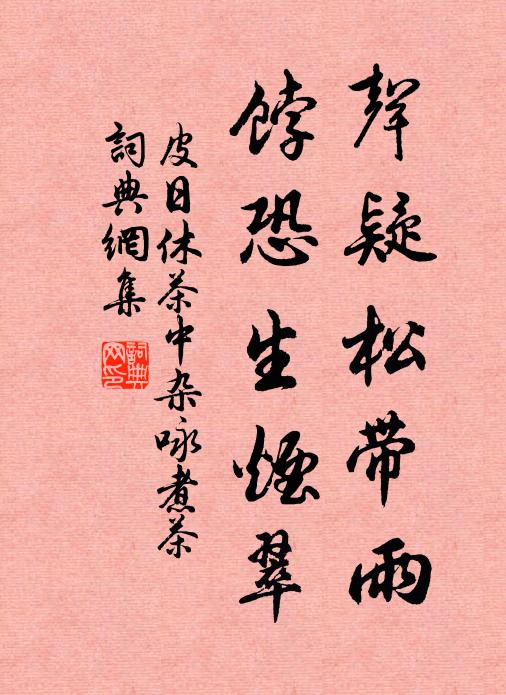 聲疑松帶雨
餑恐生煙翠
皮日休茶中杂咏煮茶
詞典網集
詞典网印